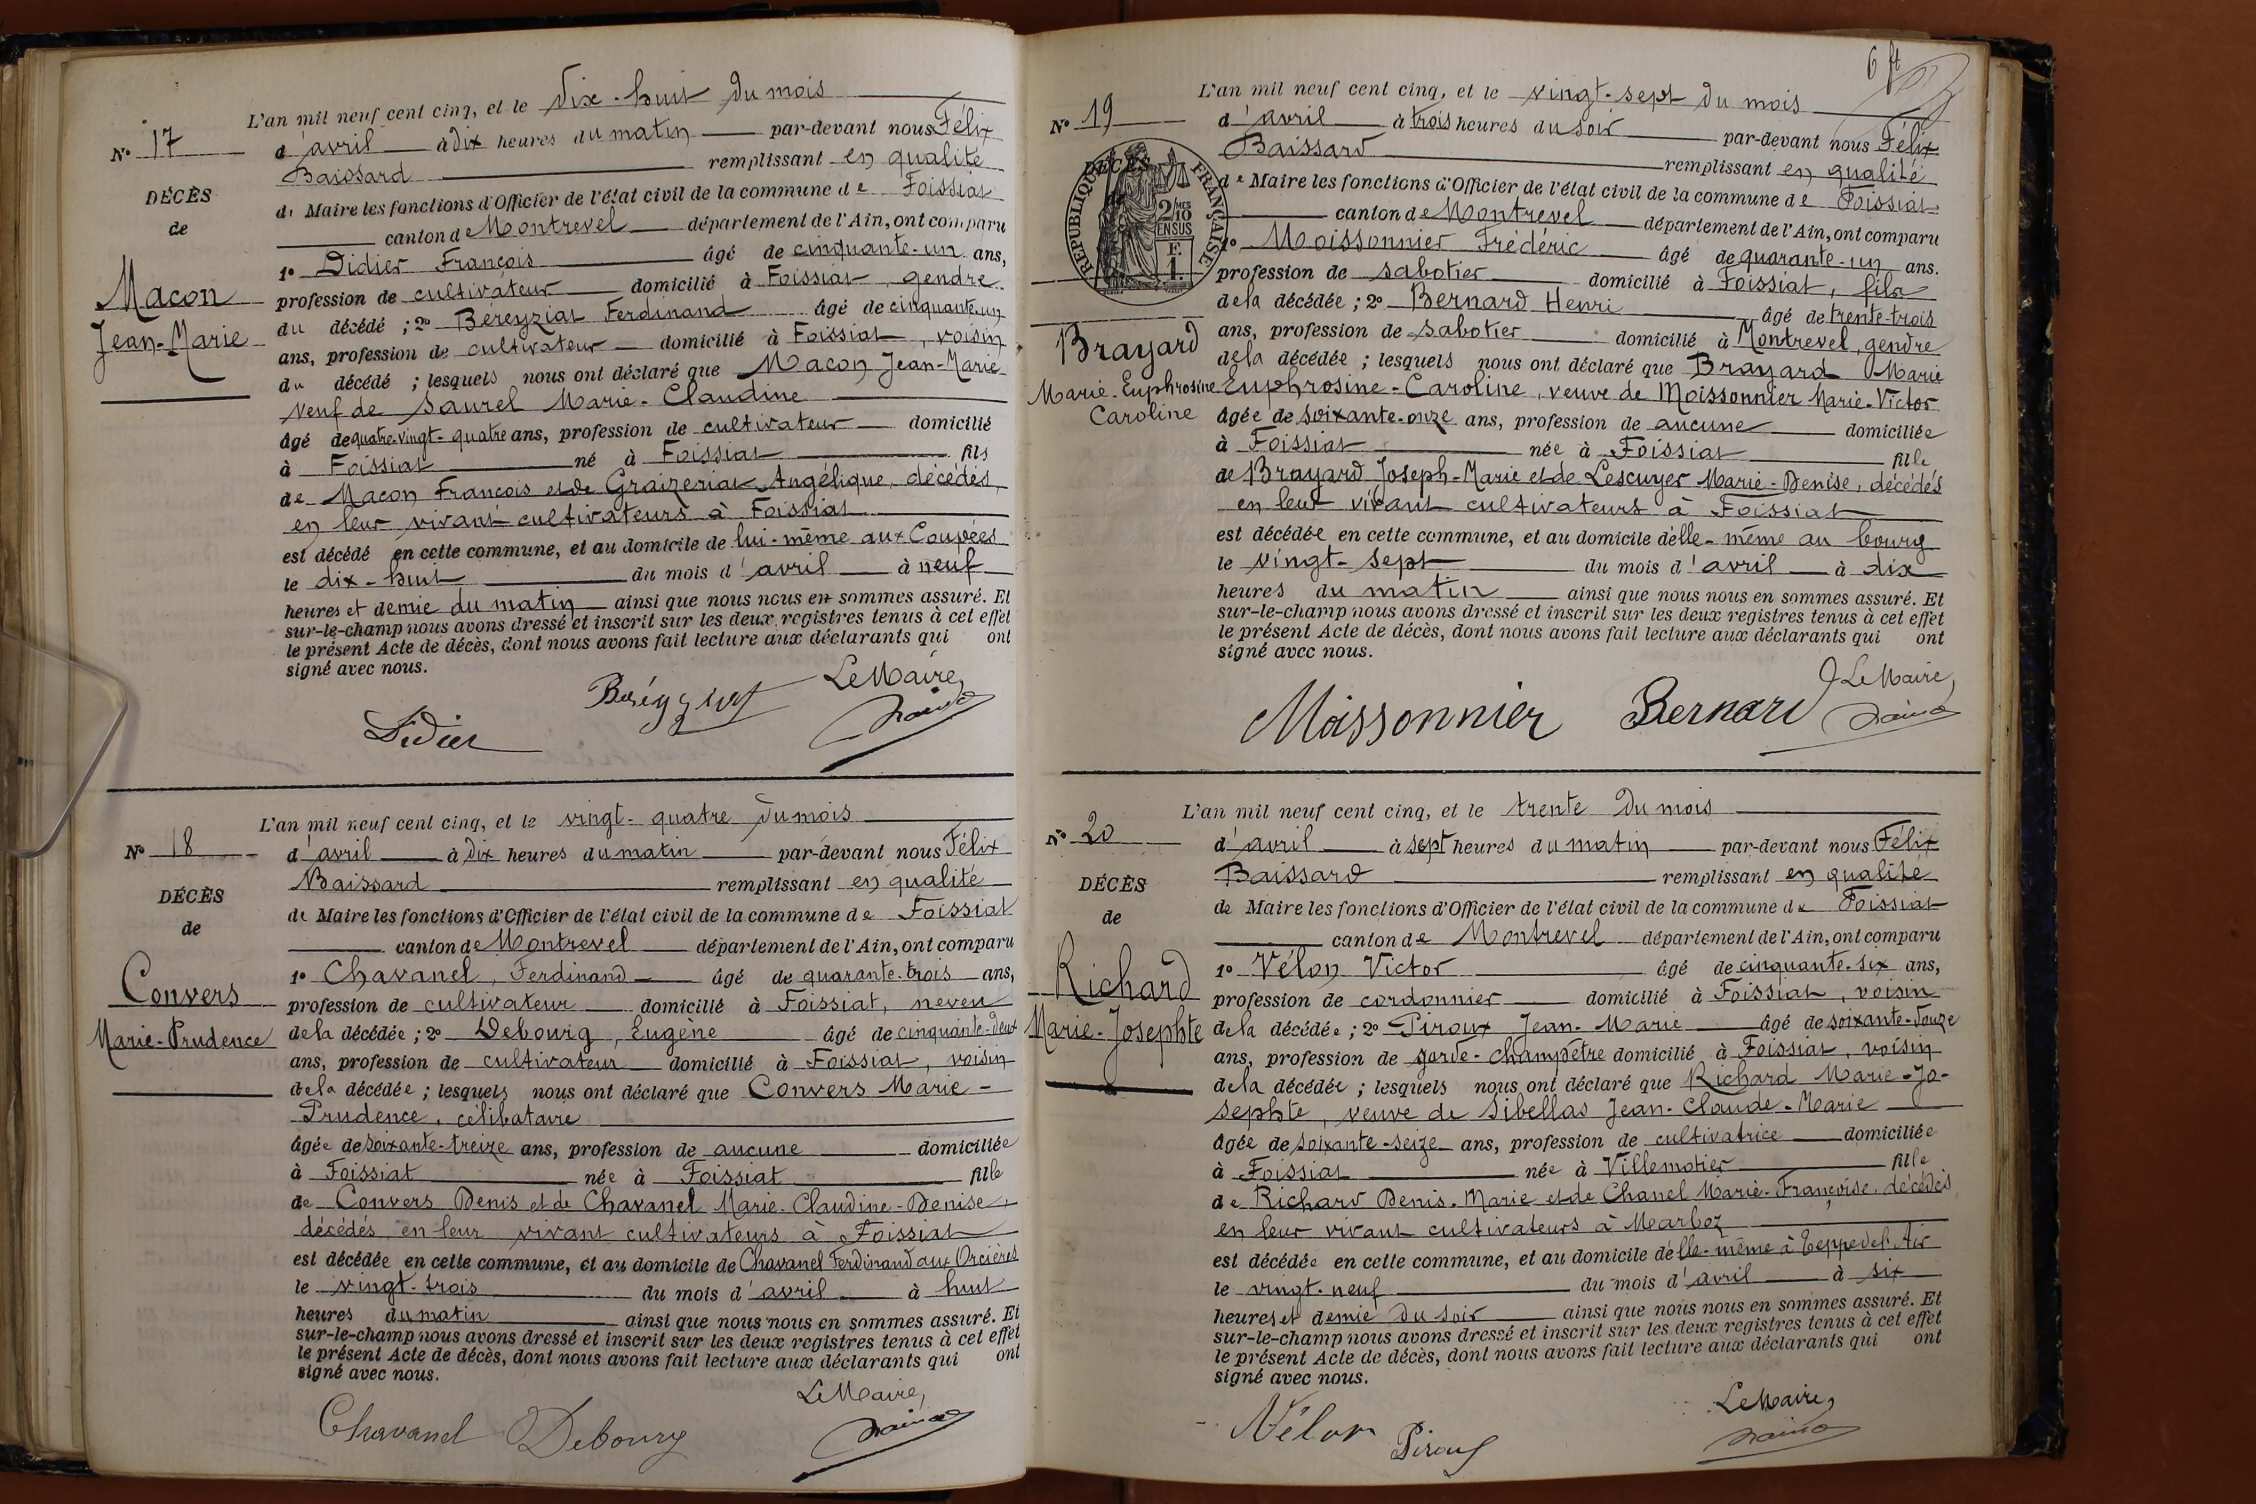 N° 17
DÉCÈS
de
Macon
Jean-Marie
L'an mil neuf cent cinq, et le dix-huit du mois
d'avril à dix heures du matin par-devant nous Félix
Baissard remplissant en qualité
de Maire les fonctions d'Officier de l'état civil de la commune de Foissiat
canton de Montrevel département de l'Ain, ont comparu
1° Didier François âgé de cinquante-un ans,
profession de cultivateur domicilié à Foissiat, gendre
du décédé ; 2° Béreyziat Ferdinand âgé de cinquante-un
ans, profession de cultivateur domicilié à Foissiat, voisin
du décédé ; lesquels nous ont déclaré que Macon Jean-Marie
veuf de Saurel Marie-Claudine
âgé de quatre-vingt-quatre ans, profession de cultivateur domicilié
à Foissiat né à Foissiat fils
de Macon François et de Graizeriat Angélique, décédés,
en leur vivant cultivateurs à Foissiat
est décédé en cette commune, et au domicile de lui-même aux Coupées
le dix-huit du mois d'avril à neuf
heures et demie du matin ainsi que nous nous en sommes assuré. Et
sur-le-champ nous avons dressé et inscrit sur les deux registres tenus à cet effet
le présent Acte de décès, dont nous avons fait lecture aux déclarants qui ont
signé avec nous.
Le Maire,
Didier
N° 18
DÉCÈS
de
Convers
Marie-Prudence
L'an mil neuf cent cinq, et le vingt-quatre du mois
d'avril à dix heures du matin par-devant nous Félix
Baissard remplissant en qualité
de Maire les fonctions d'Officier de l'état civil de la commune de Foissiat
canton de Montrevel département de l'Ain, ont comparu
1° Chavanel, Ferdinand âgé de quarante-trois ans,
profession de cultivateur domicilié à Foissiat, neveu
de la décédée ; 2° Debourg, Eugène âgé de cinquante-deux
ans, profession de cultivateur domicilié à Foissiat, voisin
de la décédée ; lesquels nous ont déclaré que Convers Marie-
Prudence, célibataire
âgée de soixante-treize ans, profession de aucune domiciliée
à Foissiat née à Foissiat fille
de Convers Denis et de Chavanel Marie-Claudine-Denise,
décédés en leur vivant cultivateurs à Foissiat
est décédée en cette commune, et au domicile de Chavanel Ferdinand aux Orcières
le vingt-trois du mois d'avril à huit
heures du matin ainsi que nous nous en sommes assuré. Et
sur-le-champ nous avons dressé et inscrit sur les deux registres tenus à cet effet
le présent Acte de décès, dont nous avons fait lecture aux déclarants qui ont
signé avec nous.
Le Maire,
Chavanel Debourg
6 ft
N° 19
DÉCÈS
RÉPUBLIQUE FRANÇAISE
2/10 MES
EN SUS
F.
1.
Brayard
Marie-Euphrosine
Caroline
L'an mil neuf cent cinq, et le vingt-sept du mois
d'avril à trois heures du soir par-devant nous Félix
Baissard remplissant en qualité
de Maire les fonctions d'Officier de l'état civil de la commune de Foissiat
canton de Montrevel département de l'Ain, ont comparu
1° Moissonnier Frédéric âgé de quarante-un ans.
profession de sabotier domicilié à Foissiat, fils
de la décédée ; 2° Bernard Henri âgé de trente-trois
ans, profession de sabotier domicilié à Montrevel, gendre
de la décédée ; lesquels nous ont déclaré que Brayard Marie
Euphrosine-Caroline, veuve de Moissonnier Marie-Victor
âgée de soixante-onze ans, profession de aucune domiciliée
à Foissiat née à Foissiat fille
de Brayard Joseph-Marie et de Lescuyer Marie-Denise, décédés
en leur vivant cultivateurs à Foissiat
est décédée en cette commune, et au domicile d'elle-même au bourg
le vingt-sept du mois d'avril à dix
heures du matin ainsi que nous nous en sommes assuré. Et
sur-le-champ nous avons dressé et inscrit sur les deux registres tenus à cet effet
le présent Acte de décès, dont nous avons fait lecture aux déclarants qui ont
signé avec nous.
Le Maire,
Moissonnier Bernard
N° 20
DÉCÈS
de
Richard
Marie-Josephte
L'an mil neuf cent cinq, et le trente du mois
d'avril à sept heures du matin par-devant nous Félix
Baissard remplissant en qualité
de Maire les fonctions d'Officier de l'état civil de la commune de Foissiat
canton de Montrevel département de l'Ain, ont comparu
1° Vélon Victor âgé de cinquante-six ans,
profession de cordonnier domicilié à Foissiat, voisin
de la décédée ; 2° Piroux Jean-Marie âgé de soixante-douze
ans, profession de garde-champêtre domicilié à Foissiat, voisin
de la décédée ; lesquels nous ont déclaré que Richard Marie-Jo-
sephte, veuve de Sibellas Jean-Claude-Marie
âgée de soixante-seize ans, profession de cultivatrice domiciliée
à Foissiat née à Villemotier fille
de Richard Denis-Marie et de Chanel Marie-Françoise, décédés
en leur vivant cultivateurs à Marboz
est décédée en cette commune, et au domicile d'elle-même à Teppe del'Air
le vingt-neuf du mois d'avril à six
heures et demie du soir ainsi que nous nous en sommes assuré. Et
sur-le-champ nous avons dressé et inscrit sur les deux registres tenus à cet effet
le présent Acte de décès, dont nous avons fait lecture aux déclarants qui ont
signé avec nous.
Le Maire,
Vélon Piroux